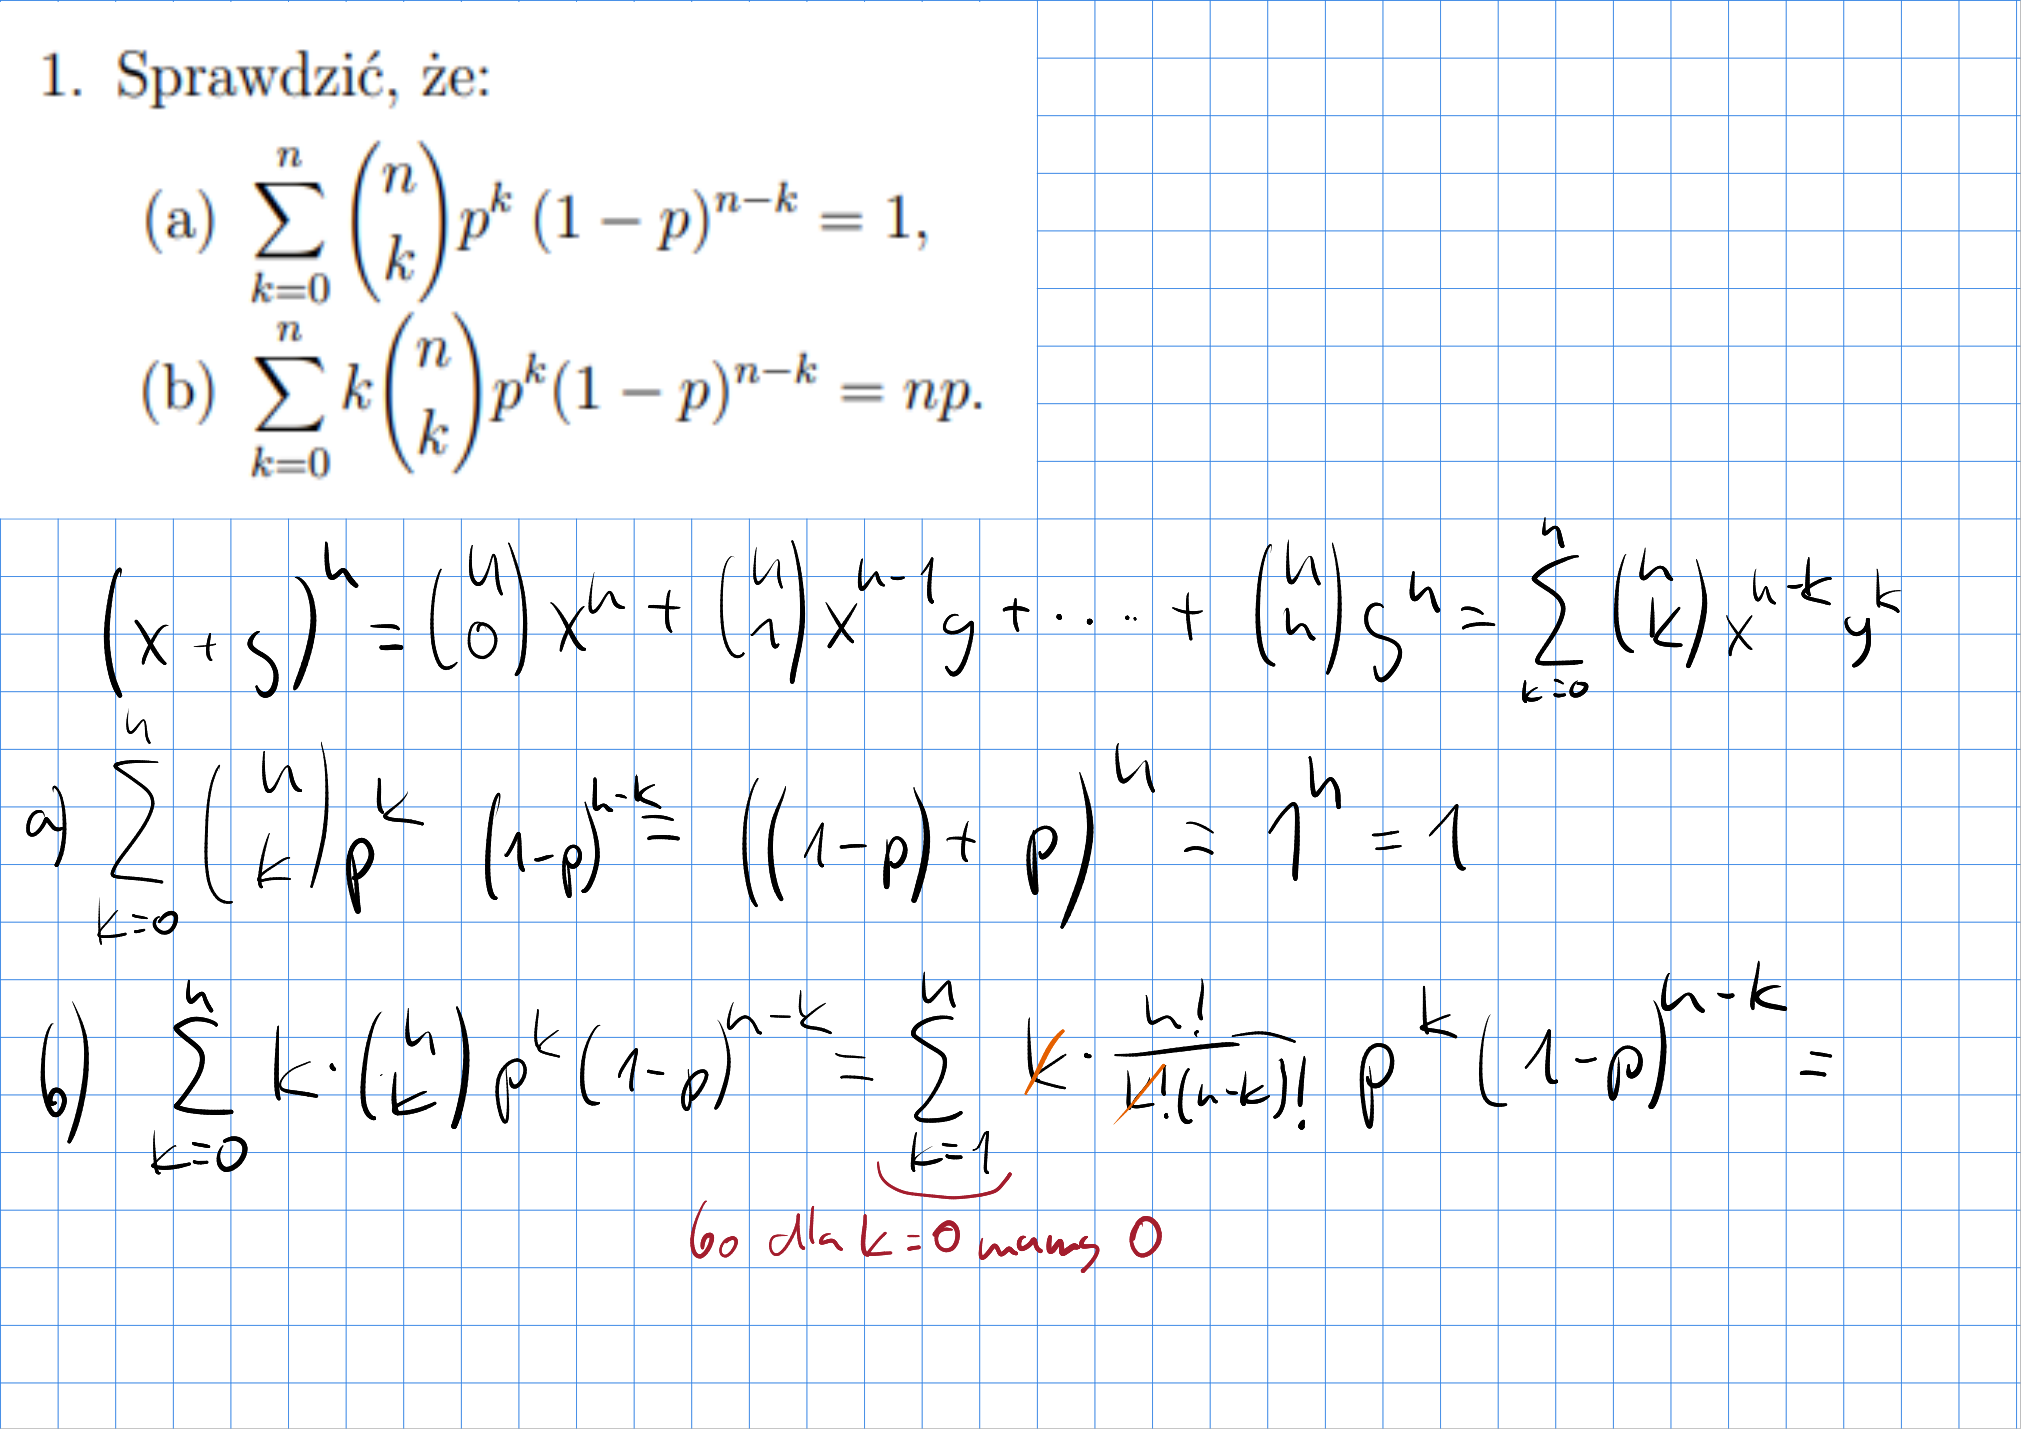 1. Sprawdzić, że:
(a) $\sum_{k=0}^{n} \binom{n}{k} p^k (1-p)^{n-k} = 1,$
(b) $\sum_{k=0}^{n} k \binom{n}{k} p^k (1-p)^{n-k} = np.$
$(x+y)^n = \binom{n}{0} x^n + \binom{n}{1} x^{n-1} y + \cdots + \binom{n}{n} y^n = \sum_{k=0}^{n} \binom{n}{k} x^{n-k} y^k$
a) $\sum_{k=0}^{n} \binom{n}{k} p^k (1-p)^{n-k} = ((1-p)+p)^n = 1^n = 1$
b) $\sum_{k=0}^{n} k \cdot \binom{n}{k} p^k (1-p)^{n-k} = \sum_{k=1}^{n} k \cdot \frac{n!}{k!(n-k)!} p^k (1-p)^{n-k} =$
bo dla k=0 mamy 0